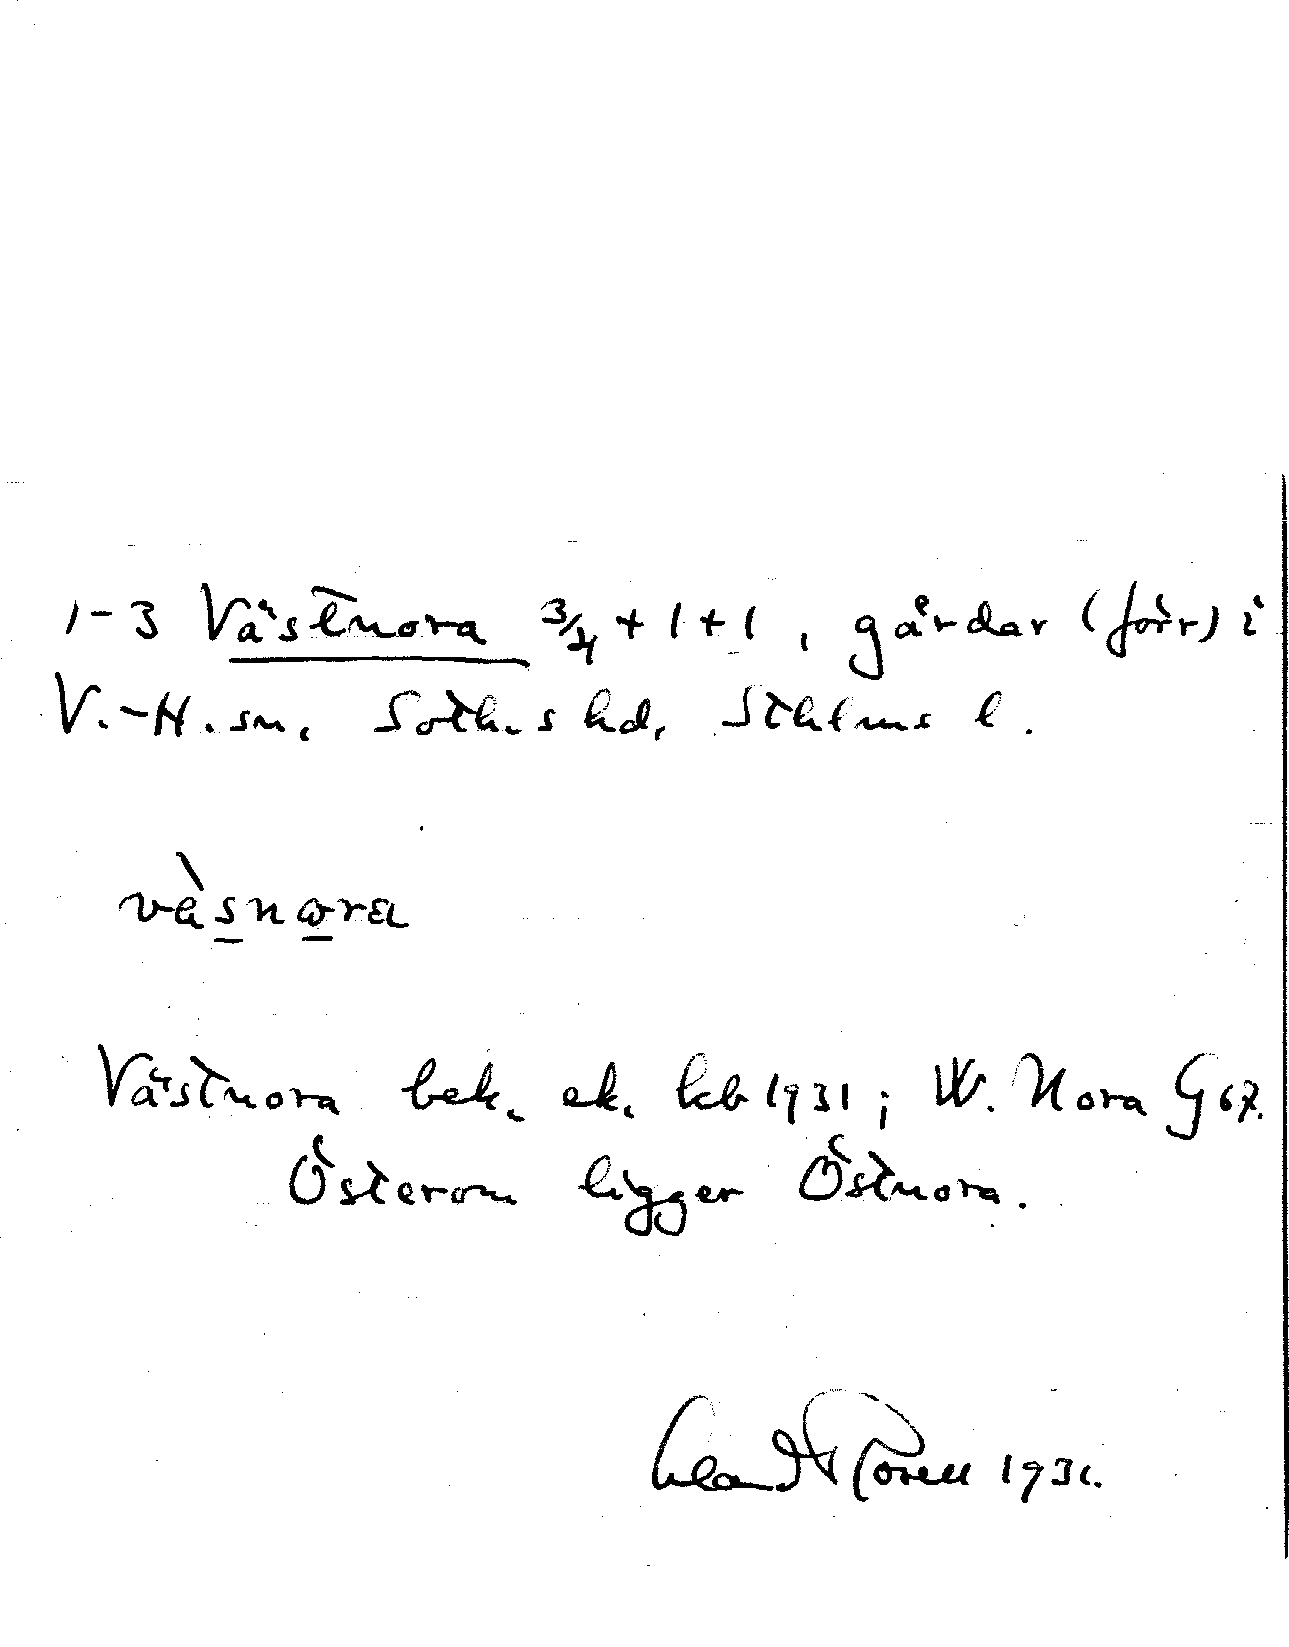 1-3 Västnora 3/4 + 1 + 1, gårdar (förr) i
V.-H. sn, Soth.s hd, Sthlms l.
vàsnora
Västnora bek. ek. kb 1931; W. Nora G 67.
Österom ligger Östnora.
1931.